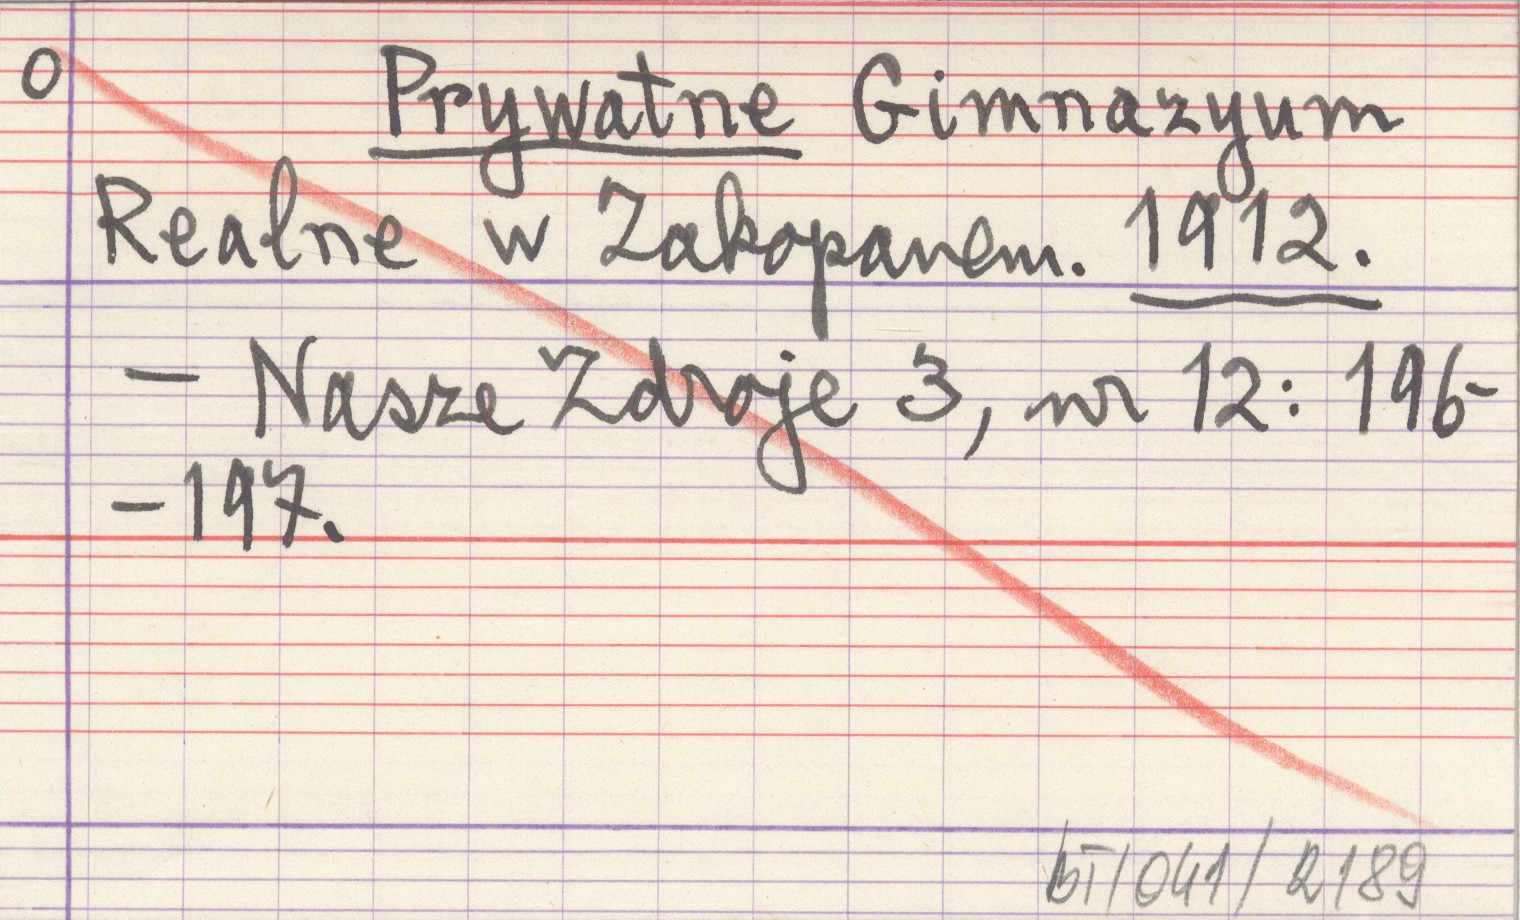 O
Prywatne Gimnazyum
Realne w Zakopanem. 1912.
– Nasze Zdroje 3, nr 12: 196-
-197.
bT/041/2189